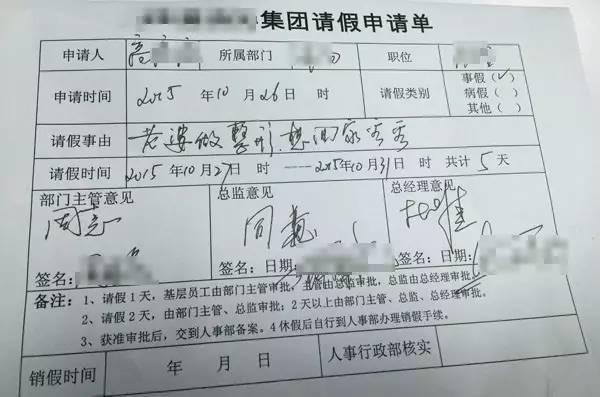 集团请假申请单
申请人 所属部门 职位
申请时间 2015 年 10 月 26 日 时 请假类别 事假（✓）
病假（ ）
其他（ ）
请假事由 老婆做整形，想回家看看
请假时间 2015年10月27日 ——2015年10月31日 时 共计 5 天
部门主管意见 总监意见 总经理意见
同意 同意
签名： 签名： 日期： 签名： 日期：
备注：1、请假1天，基层员工由部门主管审批，主管由总监审批，总监由总经理审批。
2、请假2天，由部门主管、总监审批；2天以上由部门主管、总监、总经理审批。
3、获准审批后，交到人事部备案。4休假后自行到人事部办理销假手续。
销假时间 年 月 日 人事行政部核实